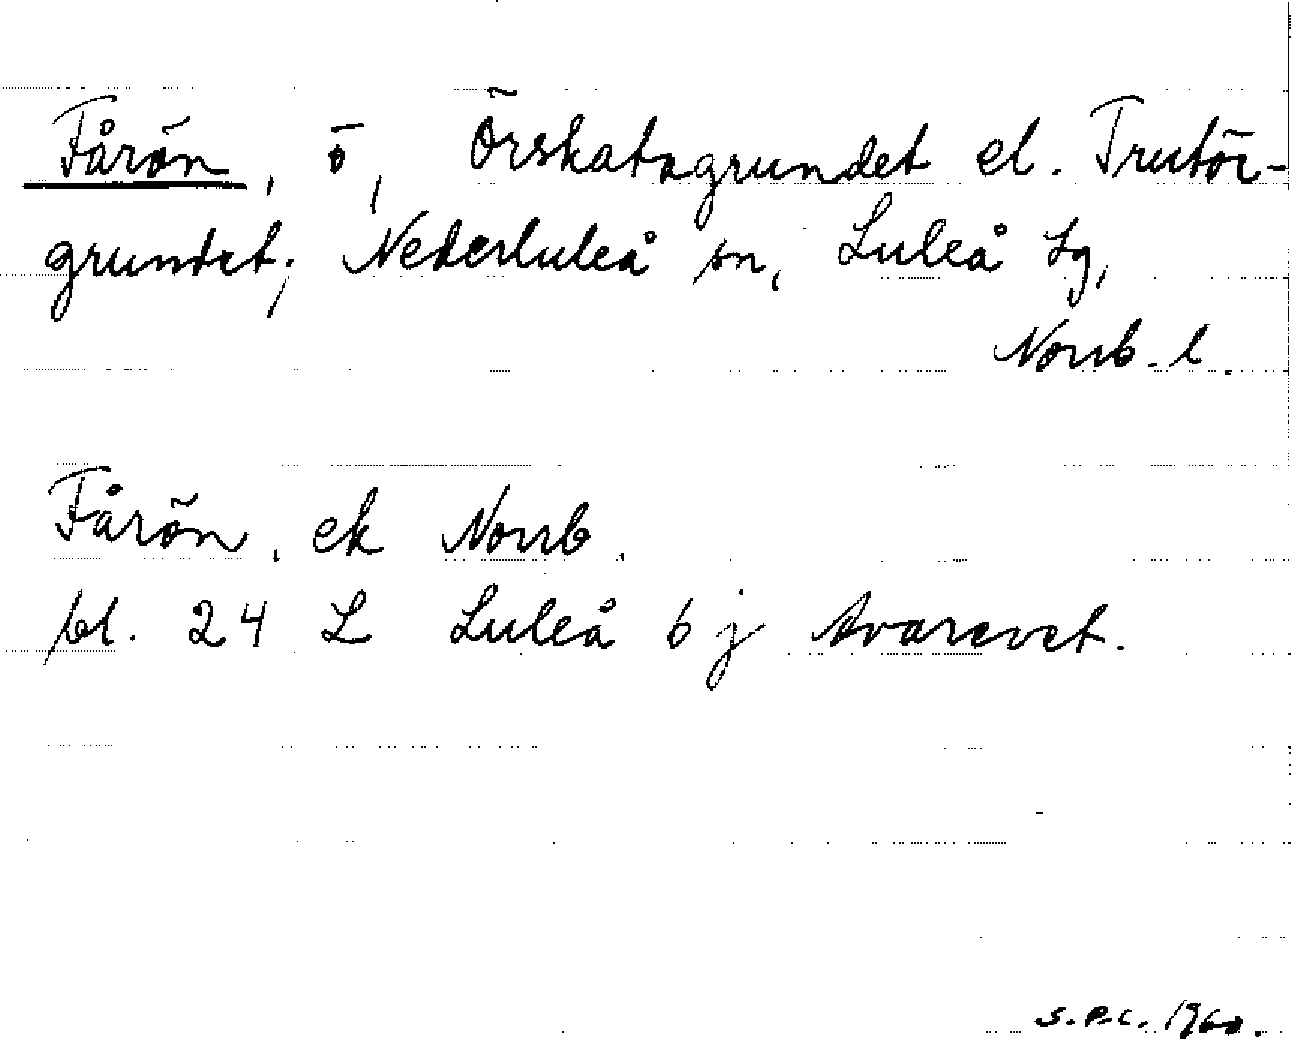 Fårön, ö, Örskatagrundet el. Trutör-
grundet; Nederluleå sn, Luleå tg,
Norrb. l.
Fårön, ek Norrb.
bl. 24 L Luleå 6 j
S.P.C. 1960.